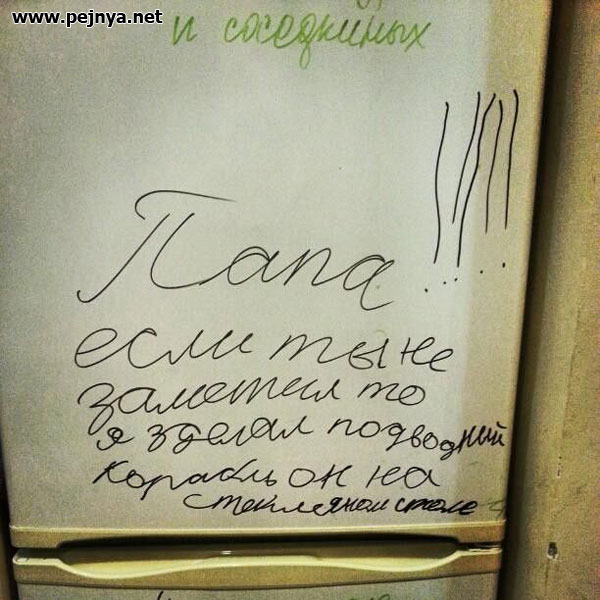 www.pejnya.net
и соседкиных
Папа !!!!!
если ты не
заметил то
я зделал подводный
корабль он на
стекляном столе